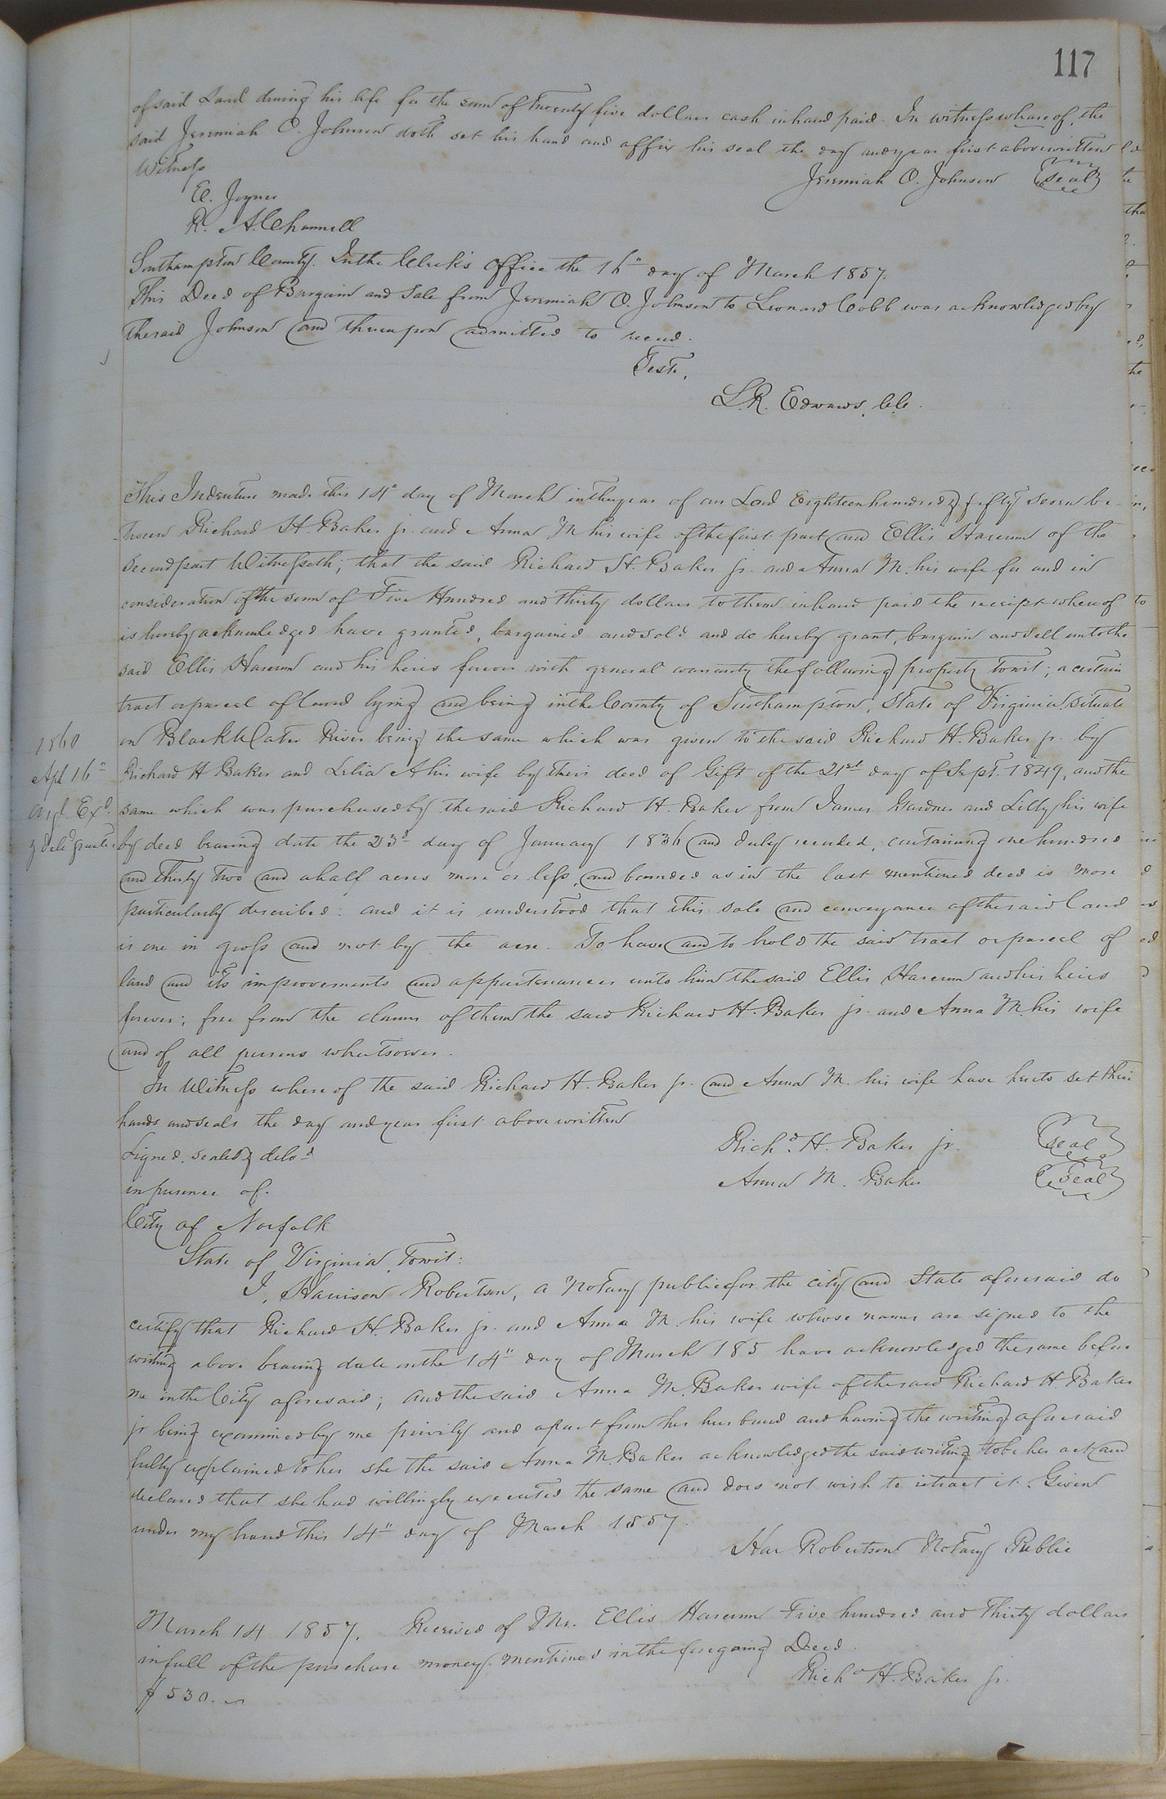 117
of said Land during his life for the sum of twenty five dollars cash in hand paid. In witness whereof, the
said Jeremiah O. Johnson doth set his hand and affix his seal the day and year first above written
Witness
Jeremiah O. Johnson (seal)
E. Joyner
R. A. Channell
Southampton County. In the Clerk's office the 16" day of March 1857.
This Deed of Bargain and Sale from Jeremiah O. Johnson to Leonard Cobb was acknowledged by
the said Johnson and thereupon admitted to record.
Teste,
L.R. Edwards, C.C.
This Indenture made this 14" day of March in the year of our Lord Eighteen hundred & fifty seven be-
tween Richard H. Baker jr. and Anna M his wife of the first part and Ellis of the
Second part Witnesseth; that the said Richard H. Baker jr. and Anna M. his wife for and in
consideration of the sum of Five Hundred and thirty dollars to them in hand paid the receipt whereof
is hereby acknowledged have granted, bargained and sold and do hereby grant, bargain and sell unto the
said Ellis and his heirs forever with general warranty the following property towit; a certain
tract or parcel of land lying and being in the County of Southampton, State of Virginia, situate
on Black Water River being the same which was given to the said Richard H. Baker jr. by
Richard H Baker and Lelia A his wife by their deed of Gift of the 21st day of Sept. 1849, and the
same which was purchased by the said Richard H. Baker from James Gardner and Lilly his wife
by deed bearing date the 23d day of January 1836 and duly recorded, containing one hundred
and thirty two and a half acres more or less, and bounded as in the last mentioned deed is more
particularly described: and it is understood that this sale and conveyance of the said land
is one in gross and not by the acre. To have and to hold the said tract or parcel of
land and its improvements and appurtenances unto him the said Ellis and his heirs
forever; free from the claims of them the said Richard H. Baker jr. and Anna M. his wife
and of all persons whatsoever.
In Witness whereof the said Richard H. Baker jr. and Anna M. his wife have hereto set their
hands and seals the day and year first above written
Signed, sealed & deld
in presence of.
Richd. H. Baker jr. (seal)
Anna M. Baker (seal)
1860
Apl 16"
Ex.d
City of Norfolk
State of Virginia, Towit:
I, Harrison Robertson, a Notary public for the city and State aforesaid do
certify that Richard H. Baker jr. and Anna M. his wife whose names are signed to the
writing above bearing date on the 14" day of March 185 have acknowledged the same before
me in the City aforesaid; and the said Anna M. Baker wife of the said Richard H Baker
jr being examined by me privily and apart from her husband and having the writing aforesaid
fully explained to her she the said Anna M. Baker acknowledged the said writing to be her act and
declared that she had willingly executed the same and does not wish to retract it. Given
under my hand this 14" day of March 1857
Har Robertson Notary Public
March 14 1857. Received of Mr. Ellis Five hundred and thirty dollars
in full of the purchase money mentioned in the foregoing Deed.
Richd H. Baker jr.
$530.